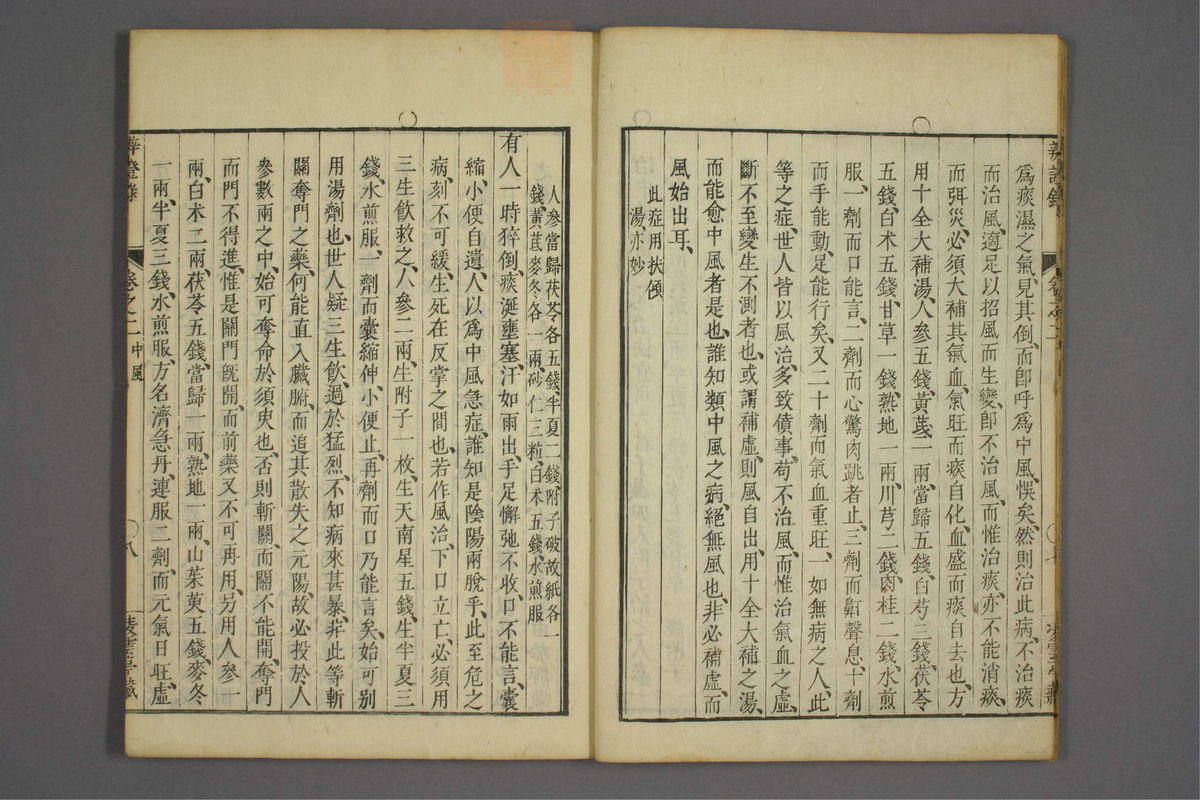 爲痰濕之氣、見其倒、而卽呼爲中風、悞矣、然則治此病、不治痰
而治風、適足以招風而生變、卽不治風、而惟治痰、亦不能消痰、
而弭災、必須大補其氣血、氣旺而痰自化、血盛而痰自去也、方
用十全大補湯、人參五錢、黃芪一兩、當歸五錢、白芍三錢、茯苓
五錢、白术五錢、甘草一錢、熟地一兩、川芎二錢、肉桂二錢、水煎
服、一劑而口能言、二劑而心驚肉跳者止、三劑而鼾聲息、十劑
而手能動、足能行矣、又二十劑而氣血重旺、一如無病之人、此
等之症、世人皆以風治、多致僨事、苟不治風、而惟治氣血之虛、
斷不至變生不測者也、或謂補虛、則風自出、用十全大補之湯、
而能愈中風者是也、誰知類中風之病、絕無風也、非必補虛、而
風始出耳、
此症用扶傾
湯亦妙
人參當歸茯苓各五錢半夏二錢附子破故紙各一
錢黃芪麥冬各一兩砂仁三粒白术五錢水煎服
有人一時猝倒、痰涎壅塞、汗如雨出、手足懈弛不收、口不能言、囊
縮、小便自遺、人以爲中風急症、誰知是陰陽兩脫乎、此至危之
病、刻不可緩、生死在反掌之間也、若作風治、下口立亡、必須用
三生飲救之、人參二兩、生附子一枚、生天南星五錢、生半夏三
錢、水煎服、一劑而囊縮伸、小便止、再劑而口乃能言矣、始可別
用湯劑也、世人疑三生飲、過於猛烈、不知病來甚暴、非此等斬
關奪門之藥、何能直入臟腑、而追其散失之元陽、故必投於人
參數兩之中、始可奪命於須臾也、否則斬關、而關不能開、奪門
而門不得進、惟是關門旣開、而前藥又不可再用、另用人參一
兩、白术二兩、茯苓五錢、當歸一兩、熟地一兩、山茱萸五錢、麥冬
一兩、半夏三錢、水煎服、方名濟急丹、連服二劑、而元氣日旺、虛
卷之二 中風
八